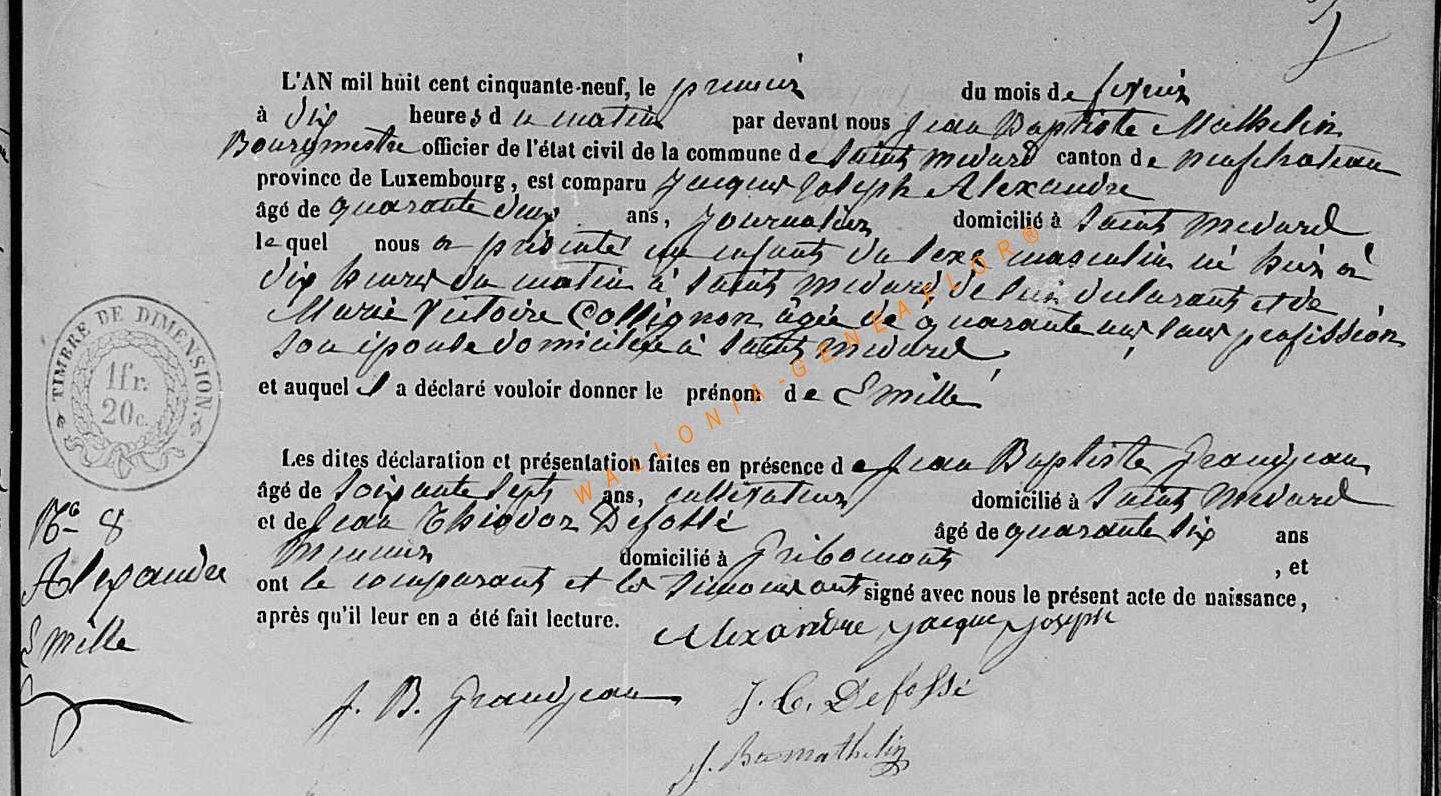 L'AN mil huit cent cinquante-neuf, le premier du mois de fevrier
à dix heures du matin par devant nous Jean Baptiste Mathelin
Bourgmestre officier de l'état civil de la commune de Saint Medard canton de neufchateau
province de Luxembourg, est comparu Jacques Joseph Alexandre
âgé de quarante deux ans, Journalier domicilié à Saint Medard
lequel nous a présenté un enfant du sexe masculin né hier à
dix heures du matin à Saint Medard de lui declarant et de
Marie Victoire Collignon âgée de quarante ans sans profession
son épouse domiciliée à Saint Medard
et auquel il a déclaré vouloir donner le prénom de Emille
TIMBRE DE DIMENSION.
1fr.
20c.
WALLONIA-GENEAFLOR®
Les dites déclaration et présentation faites en présence de Jean Baptiste Grandjean
âgé de soixante sept ans, cultivateur domicilié à Saint Medard
et de Jean Théodor Defossé âgé de quarante six ans
domicilié à Gribomont , et
ont le comparant et les temoins ont signé avec nous le présent acte de naissance,
après qu'il leur en a été fait lecture.
No 8
Alexandre
Emille
Alexandre Jacque Joseph
J. B. Grandjean
Defossé
J. B. mathelin